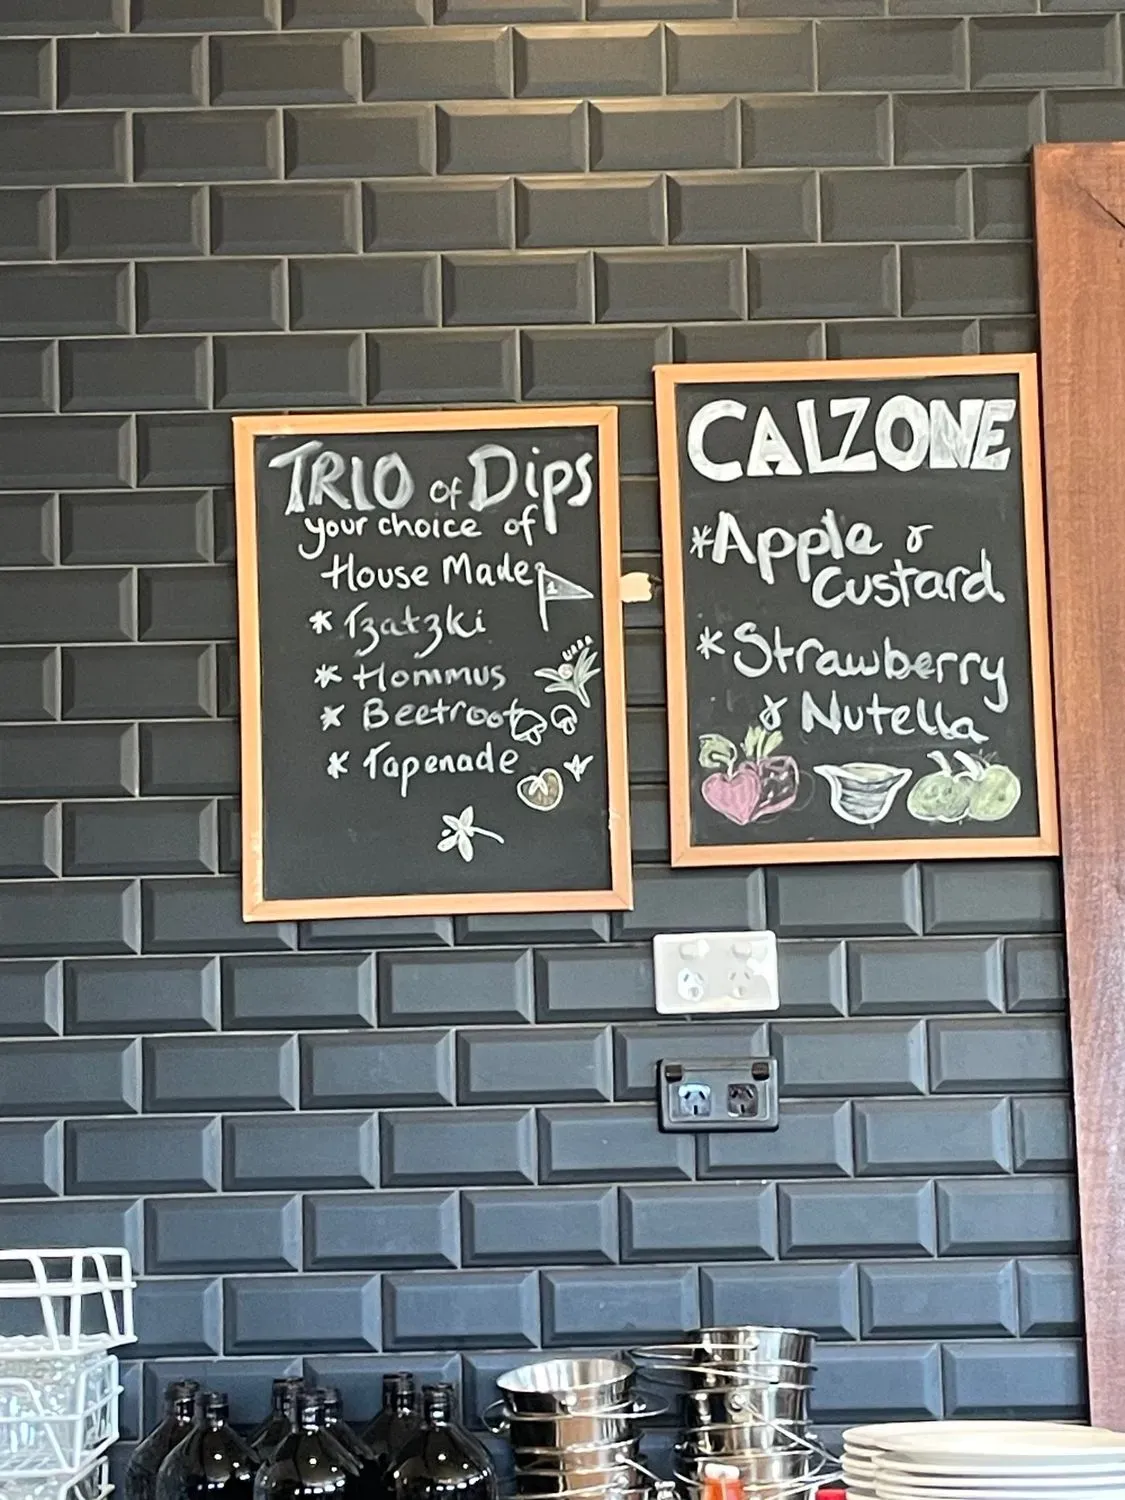 TRIO of Dips
your choice of
House Made
* Tzatzki
* Hommus
* Beetroot
* Tapenade
CALZONE
*Apple &
Custard
* Strawberry
& Nutella